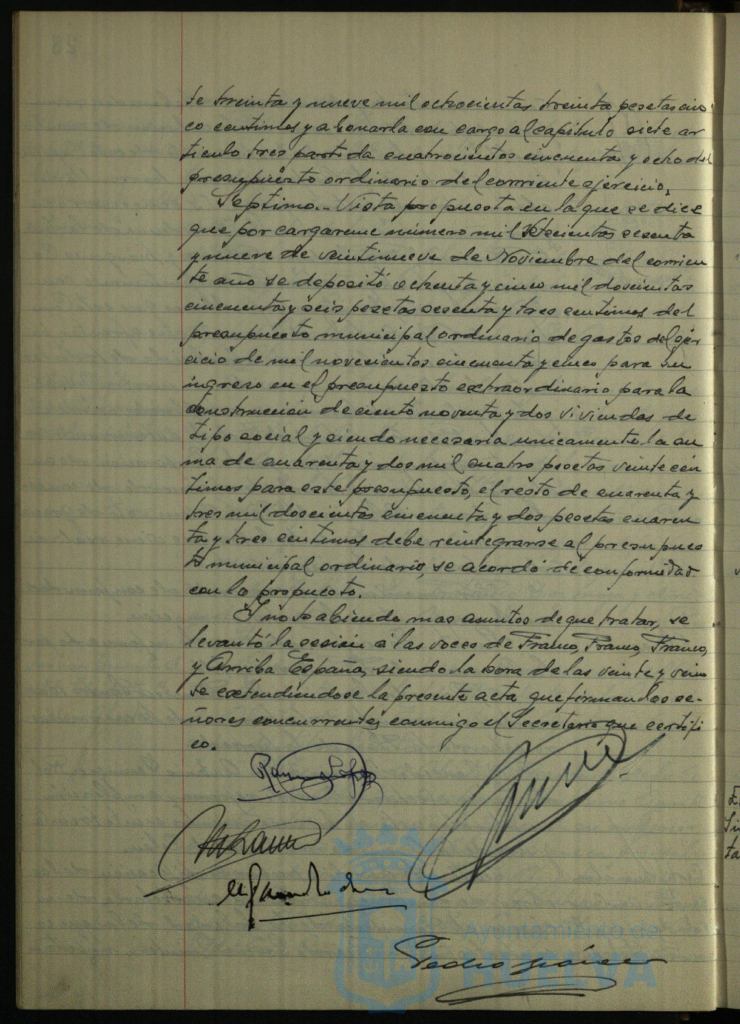 te treinta y nueve mil ochocientas treinta pesetas cin
co centimos y abonarla con cargo al capítulo siete ar
tículo tres partida cuatrocientos cincuenta y ocho del
presupuesto ordinario del corriente ejercicio.
Septimo.- Vista propuesta en la que se dice
que por cargareme número mil setecientos sesenta
y nueve de veintinueve de Noviembre del corrien
te año se depositó ochenta y cinco mil doscientas
cincuenta y seis pesetas sesenta y tres centimos del
presupuesto municipal ordinario de gastos del ejer
cicio de mil novecientos cincuenta y cinco para su
ingreso en el presupuesto extraordinario para la
construcción de ciento noventa y dos viviendas de
tipo social y siendo necesaria unicamente la su
ma de cuarenta y dos mil cuatro pesetas veinte cén
timos para este presupuesto, el resto de cuarenta y
tres mil doscientas cincuenta y dos pesetas cuaren
ta y tres centimos debe reintegrarse al presupues
to municipal ordinario, se acordó de conformidad
con la propuesta.
Y no habiendo mas asuntos de que tratar, se
levantó la sesión a las voces de Franco, Franco, Franco,
y Arriba España, siendo la hora de las veinte y vein
te extendiendose la presente acta que firman los se-
ñores concurrentes conmigo el Secretario que certifi
co.
Ayuntamiento de
HUELVA